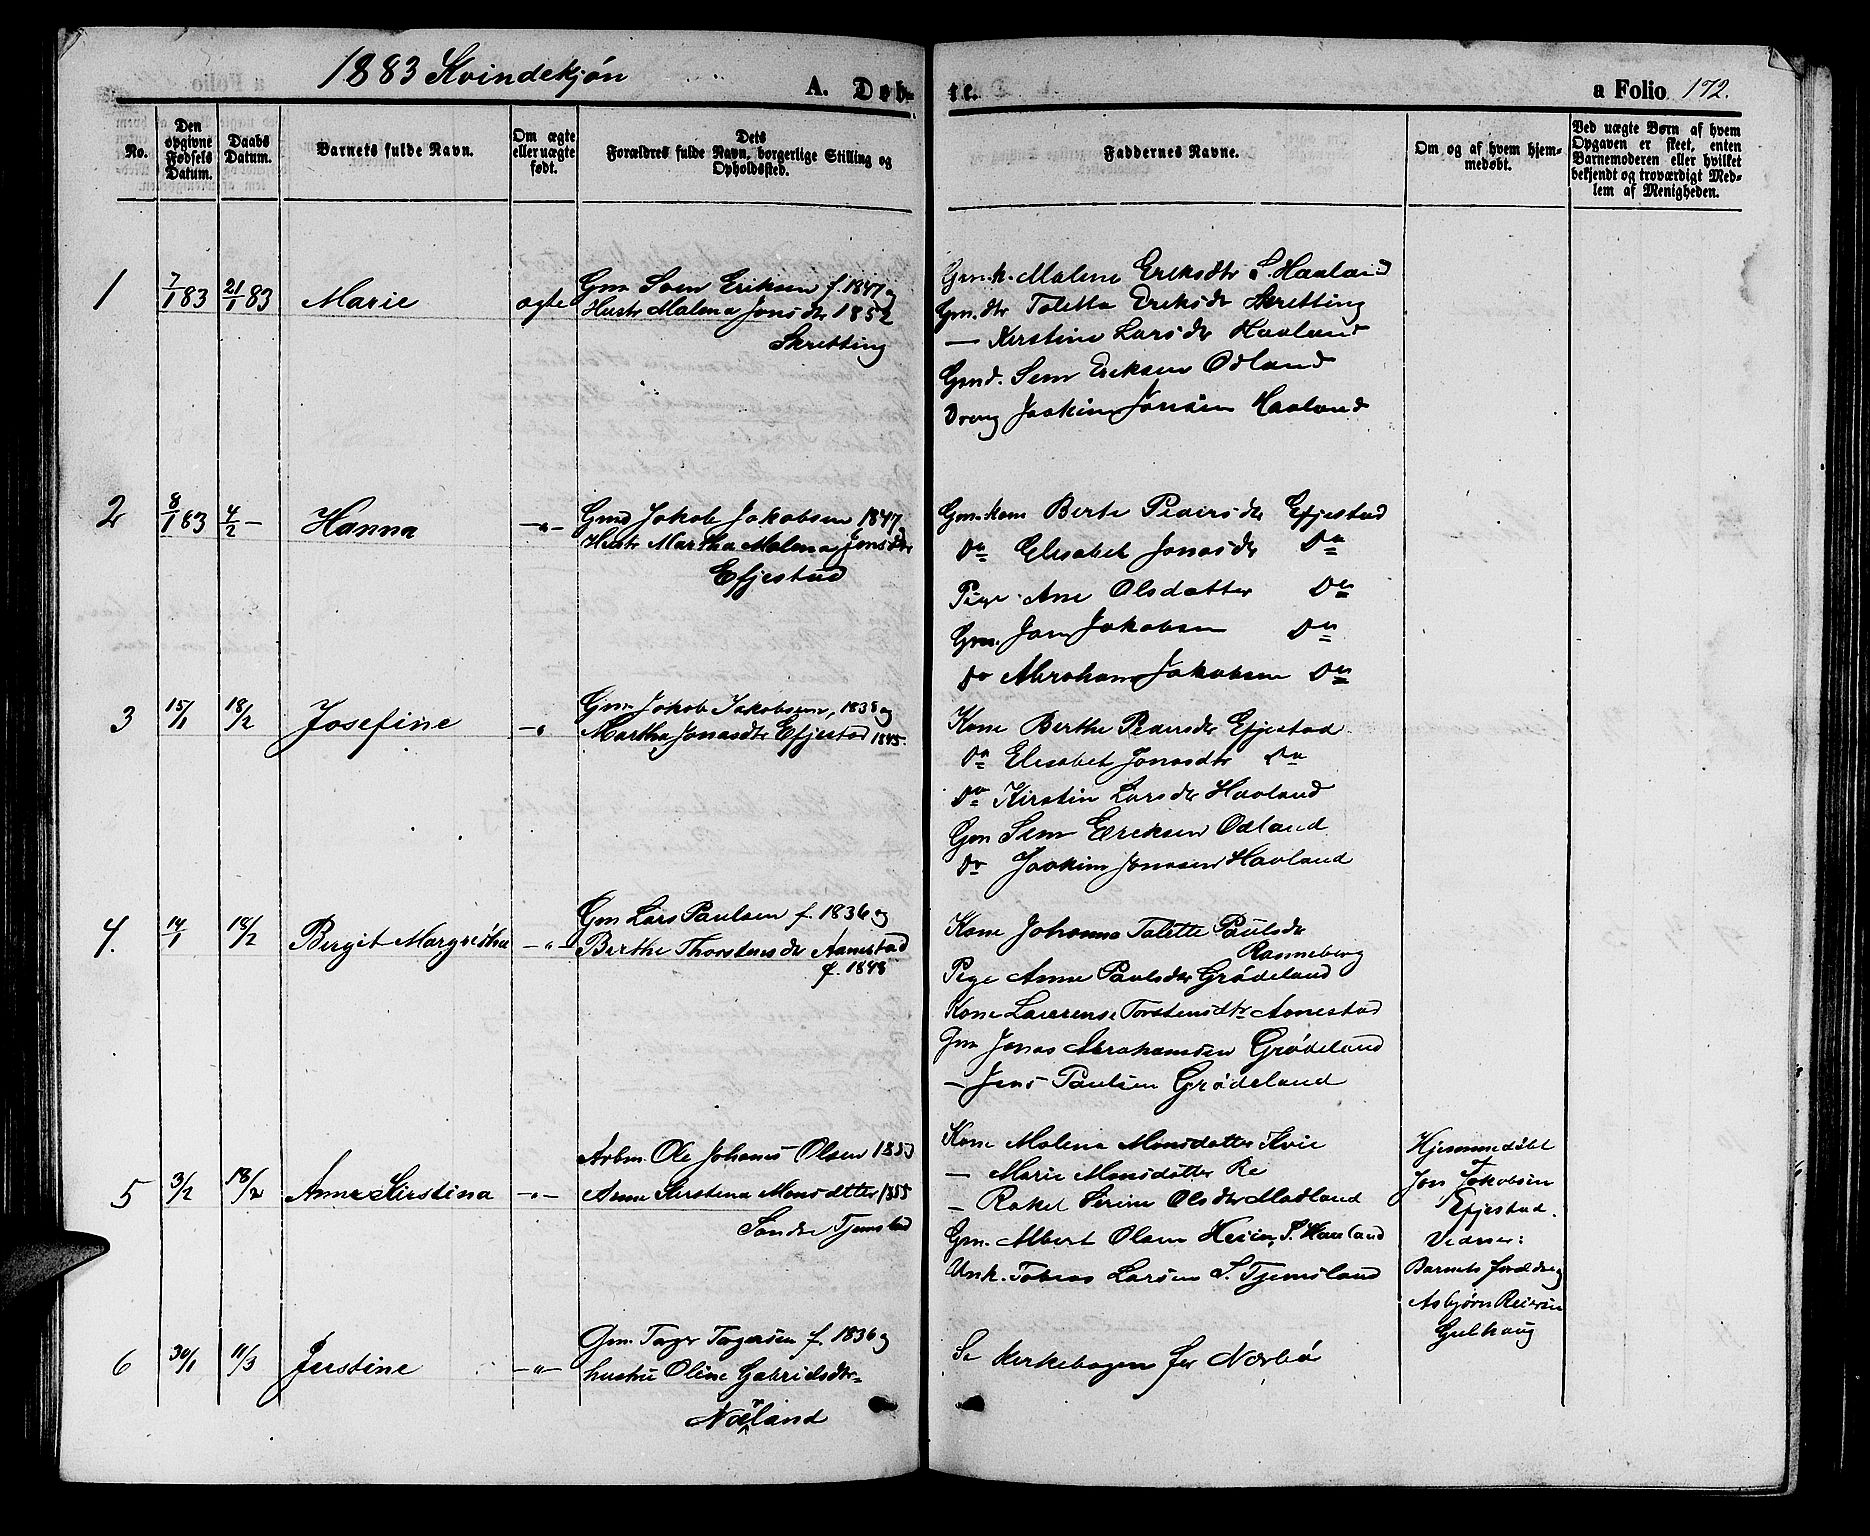 1883 Kvindekjøn
A. Døb-
te.
a Folio 172.
No.
Den opgivne Fødsels Datum.
Daabs Datum.
Barnets fulde Navn.
Om ægte eller uægte født.
Dets Forældres fulde Navn, borgerlige Stilling og Opholdssted.
Faddernes Navne.
Om og af hvem hjemmedøbt.
Ved uægte Børn af hvem Opgaven er skeet, enten Barnemoderen eller hvilket bekjendt og troværdigt Medlem af Menigheden.
1 7/1 83 21/1 83 Marie ægte
Gm Sven Eriksen f. 1847 og
Hustr Malena Jonsdtr 1852
Skretting
Gm.k. Malene Eriksdtr S. Haaland
Gm. dtr Taletta Eriksdr Skretting
— Kerstine Larsdr Haaland
Gmd. Sem Eriksen Ødland
Dreng Joakim Jonsen Haaland
2 8/1 83 4/2 — Hanna —"—
Gmd Jakob Jakobsen 1847
Hustr Martha Malena Jonsdtr
Efjestad
Gm. kone Berte Pedersdr Efjestad
Do Elisabet Jonasdr Do
Pige Ane Olsdatter Do
Gm. Jon Jakobsen Do
Do Abraham Jakobsen Do
3 15/1 18/2 Josefine —"
Gm Jakob Jakobsen, 1838 og
Martha Jonasdtr Efjestad 1845.
Kone Berthe Pedersdr Efjestad
Do Elisabet Jonasdtr Do
Do Kirstin Larsdr Haaland
Gm Sem Eriksen Ødland
Do Joakim Jonasen Haaland
4. 14/1 18/2 Birgit Margretha —"—
Gm Lars Paulsen f. 1836 og
Berthe Thorstensdr Aanestad
f. 1848
Kone Johanna Talette Paulsdr
Ranneberg
Pige Anne Paulsdtr Grødeland
Kone Laverense Torstensdtr Aanestad
Gm Jonas Abrahamsen Grødeland
— Jens Paulsen Grødeland
5 3/2 18/2 Anne Kirstina —"—
Arbm. Ole Johanes Olsen 1855
Anne Kerstena Monsdatter 1855
Søndre Tjemsland
Kone Malena Monsdatter Kvie
— Marie Monsdatter Re
— Rakel Serine Olsdtr Madland
Gm. Albert Olsen Herim, S. Haaland
Unk. Tobias Larsen S. Tjemsland
Hjemmedøbt
Jon Jakobsen
Efjestad.
Vidner:
Barnets forældre og
Asbjørn Reiersen
Gulhaug
6 30/1 11/3 Jerstine —"—
Gm. Tager Tagersen f. 1836 og
hustru Oline Gabrielsdtr
Næsland
Se kirkebogen for Nærbø